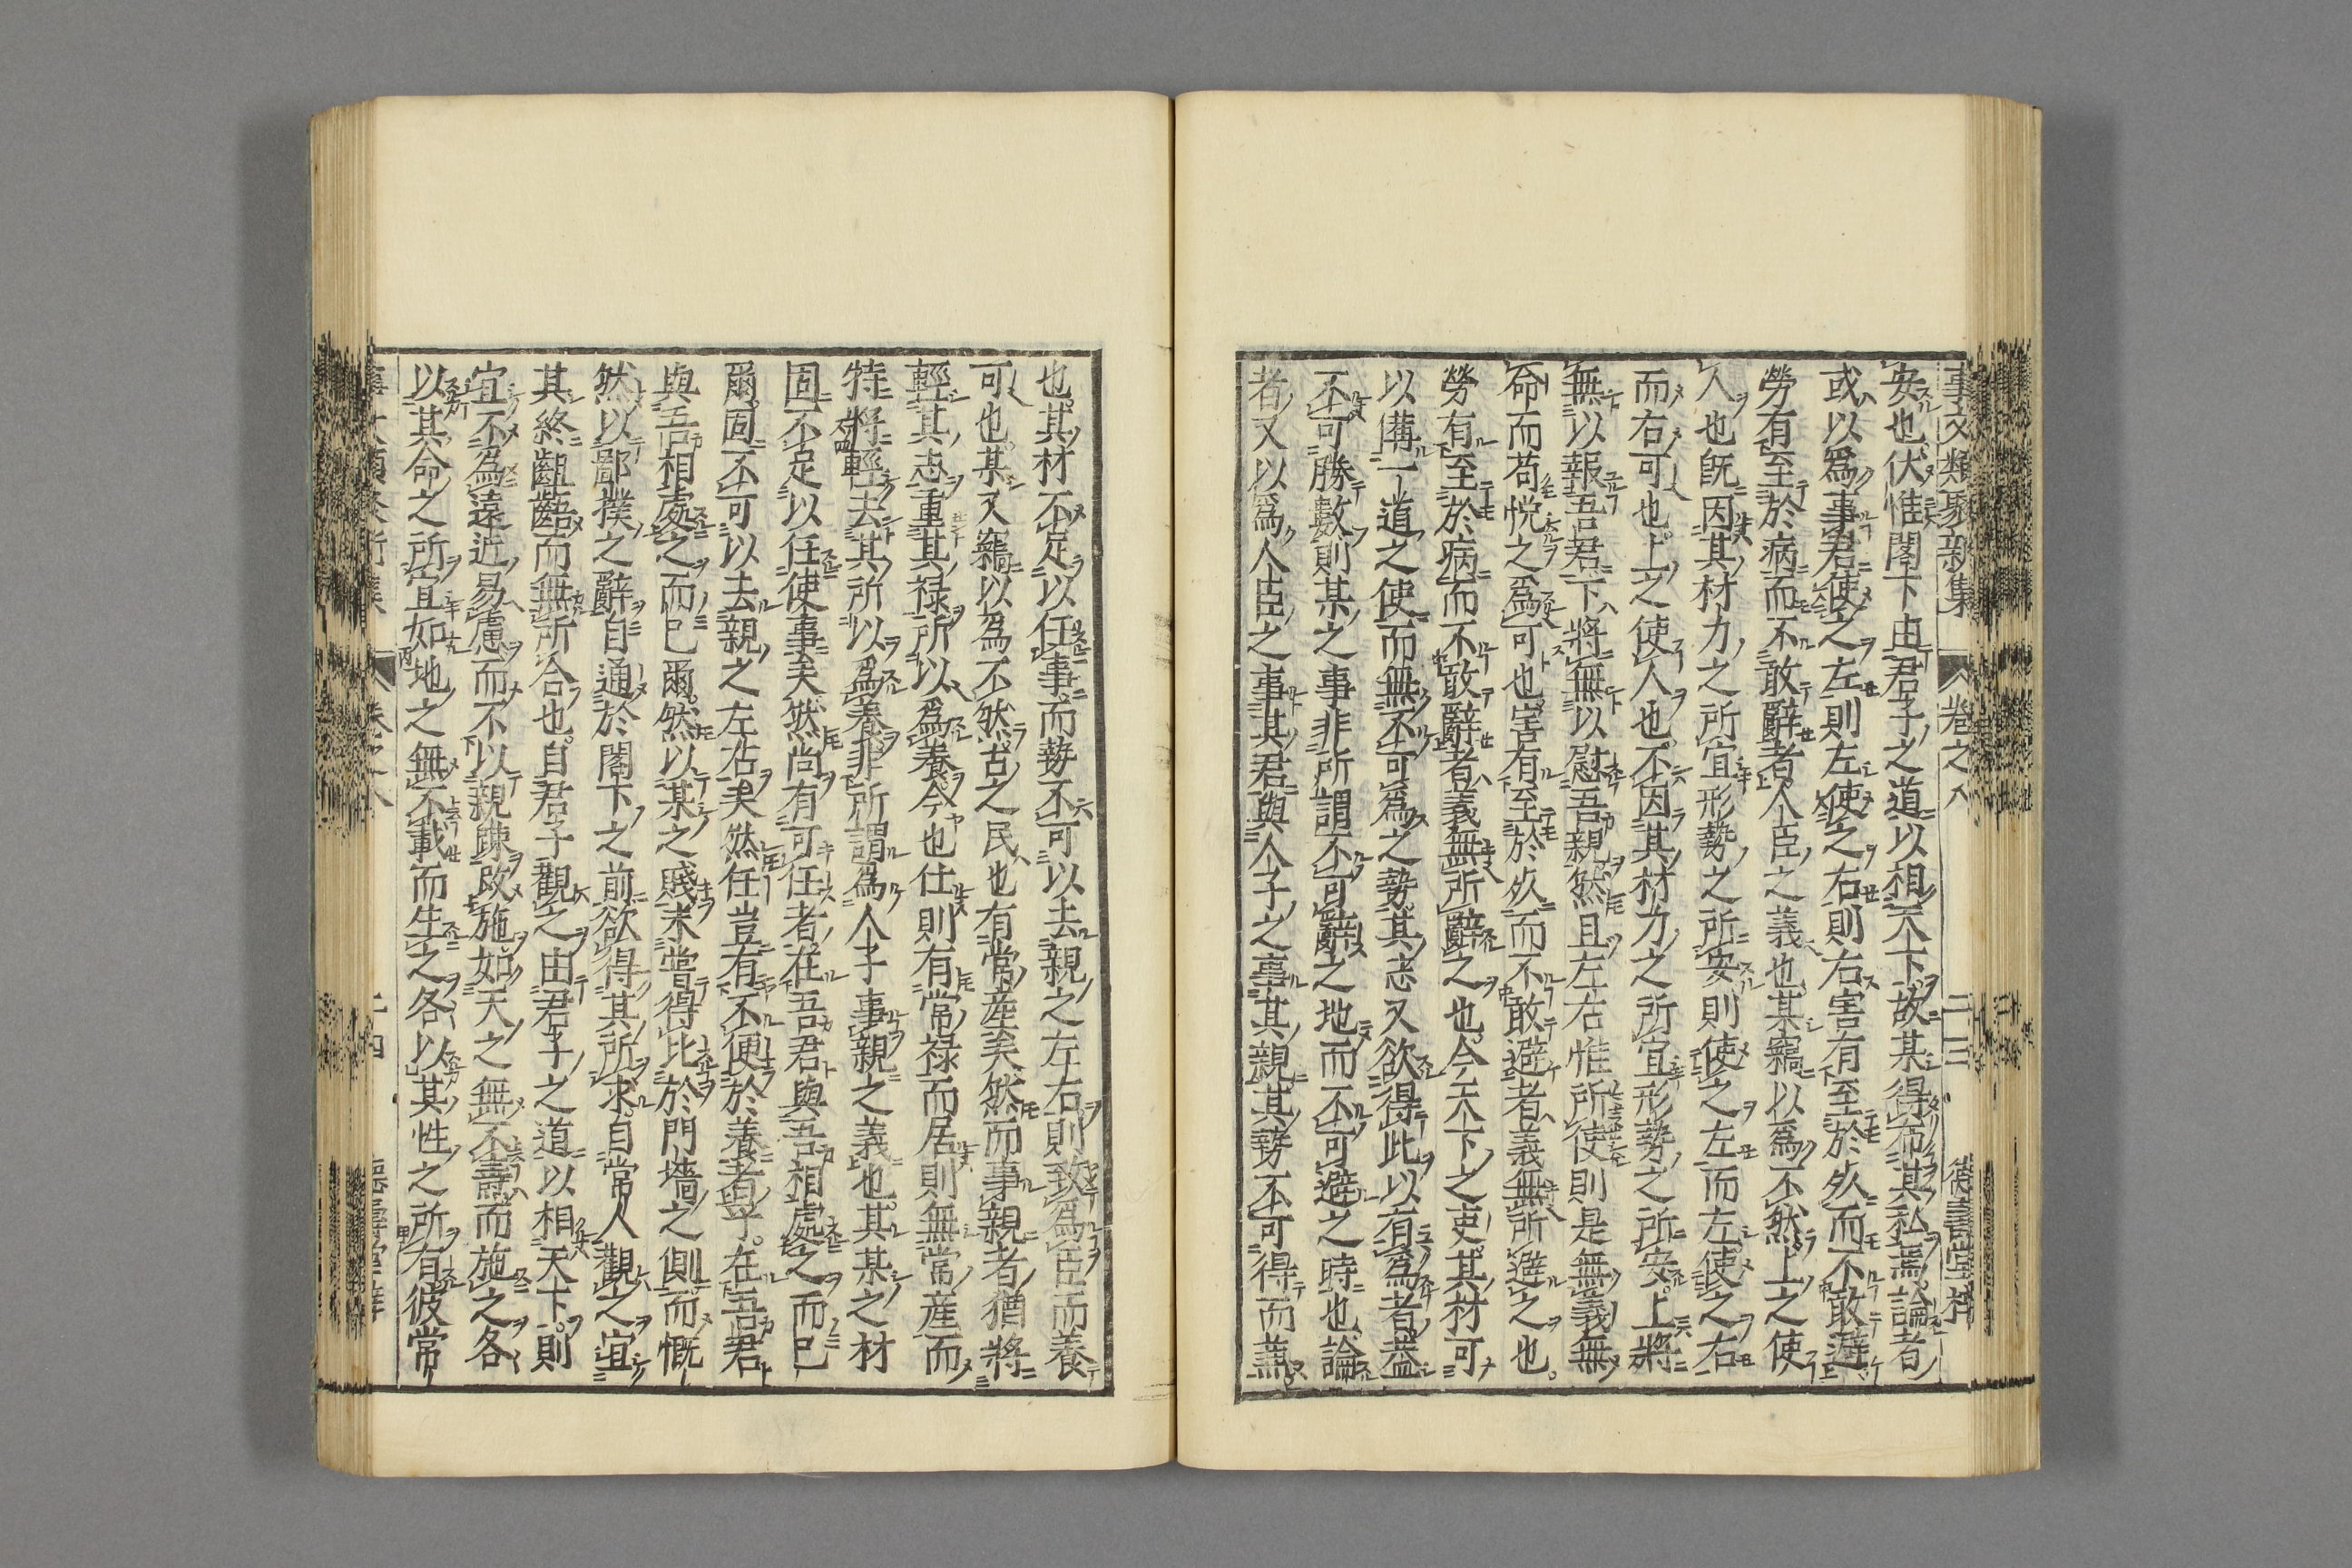 事文類聚新集 卷之八 二十三 德壽堂梓
安也伏惟閣下由君子之道以相天下故某得布其私焉論者
或以爲事君使之左則左使之右則右害有至於死而不敢避
勞有至於病而不敢辭者人臣之義也某竊以爲不然上之使
人也旣因其材力之所宜形勢之所安則使之左而左使之右
而右可也上之使人也不因其材力之所宜形勢之所安上將
無以報吾君下將無以慰吾親然且左右惟所使則是無義無
命而苟悅之爲可也害有至於死而不敢避者義無所避之也
勞有至於病而不敢辭者義無所辭之也今天下之吏其材可
以備一道之使而無不可爲之勢其志又欲得此以有爲者蓋
不可勝數則某之事非所謂不可辭之地而不可避之時也論
者又以爲人臣之事其君與人子之事其親其勢不可得而兼
也其材不足以任事而勢不可以去親之左右則致爲臣而養
可也某又竊以爲不然古之民也有常產矣然而事親者猶將
輕其志重其祿所以爲養今也仕則有常祿而居則無常產而
特將輕去其所以爲養非所謂爲人子事親之義也其某之材
固不足以任使事矣然尚有可任者在吾君與吾相處之而已
爾固不可以去親之左右矣然任豈有不便於養者乎在吾君
與吾相處之而已爾然以某之賤未嘗得比於門墻之側而慨
然以鄙撲之辭自通於閣下之前欲得其所求自常人觀之宜
其終齟齬而無所合也自君子觀之由君子之道以相天下則
宜不爲遠近易慮而不以親踈改施如天之無不燾而施之各
以其命之所宜如地之無不載而生之各以其性之所有彼常
事文類聚新集 卷之八 二十四 德壽堂梓